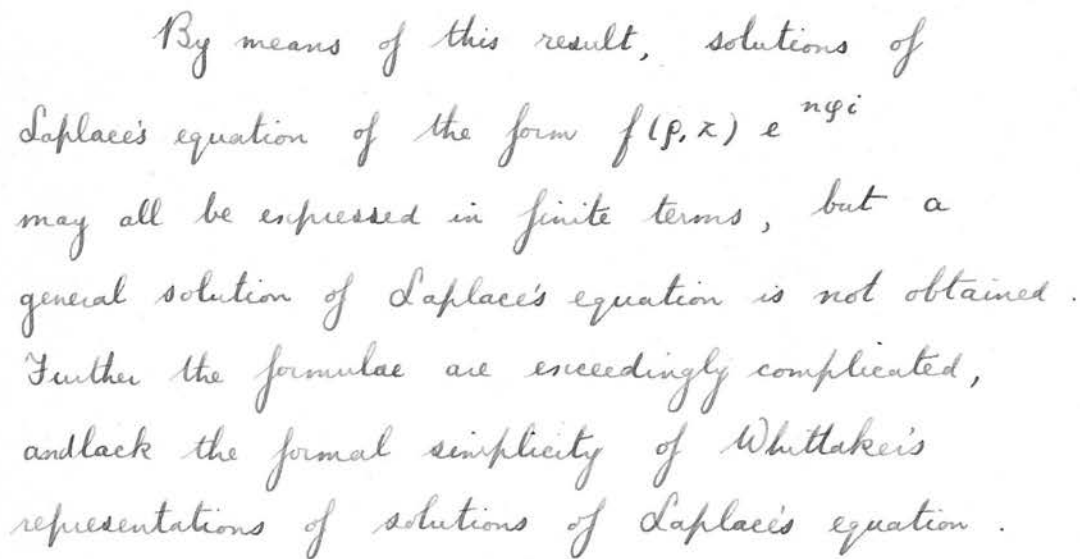 By means of this result, solutions of
Laplace's equation of the form f(ρ, z) e^{nφi}
may all be expressed in finite terms, but a
general solution of Laplace's equation is not obtained.
Further the formulae are exceedingly complicated,
andlack the formal simplicity of Whittaker's
representations of solutions of Laplace's equation.